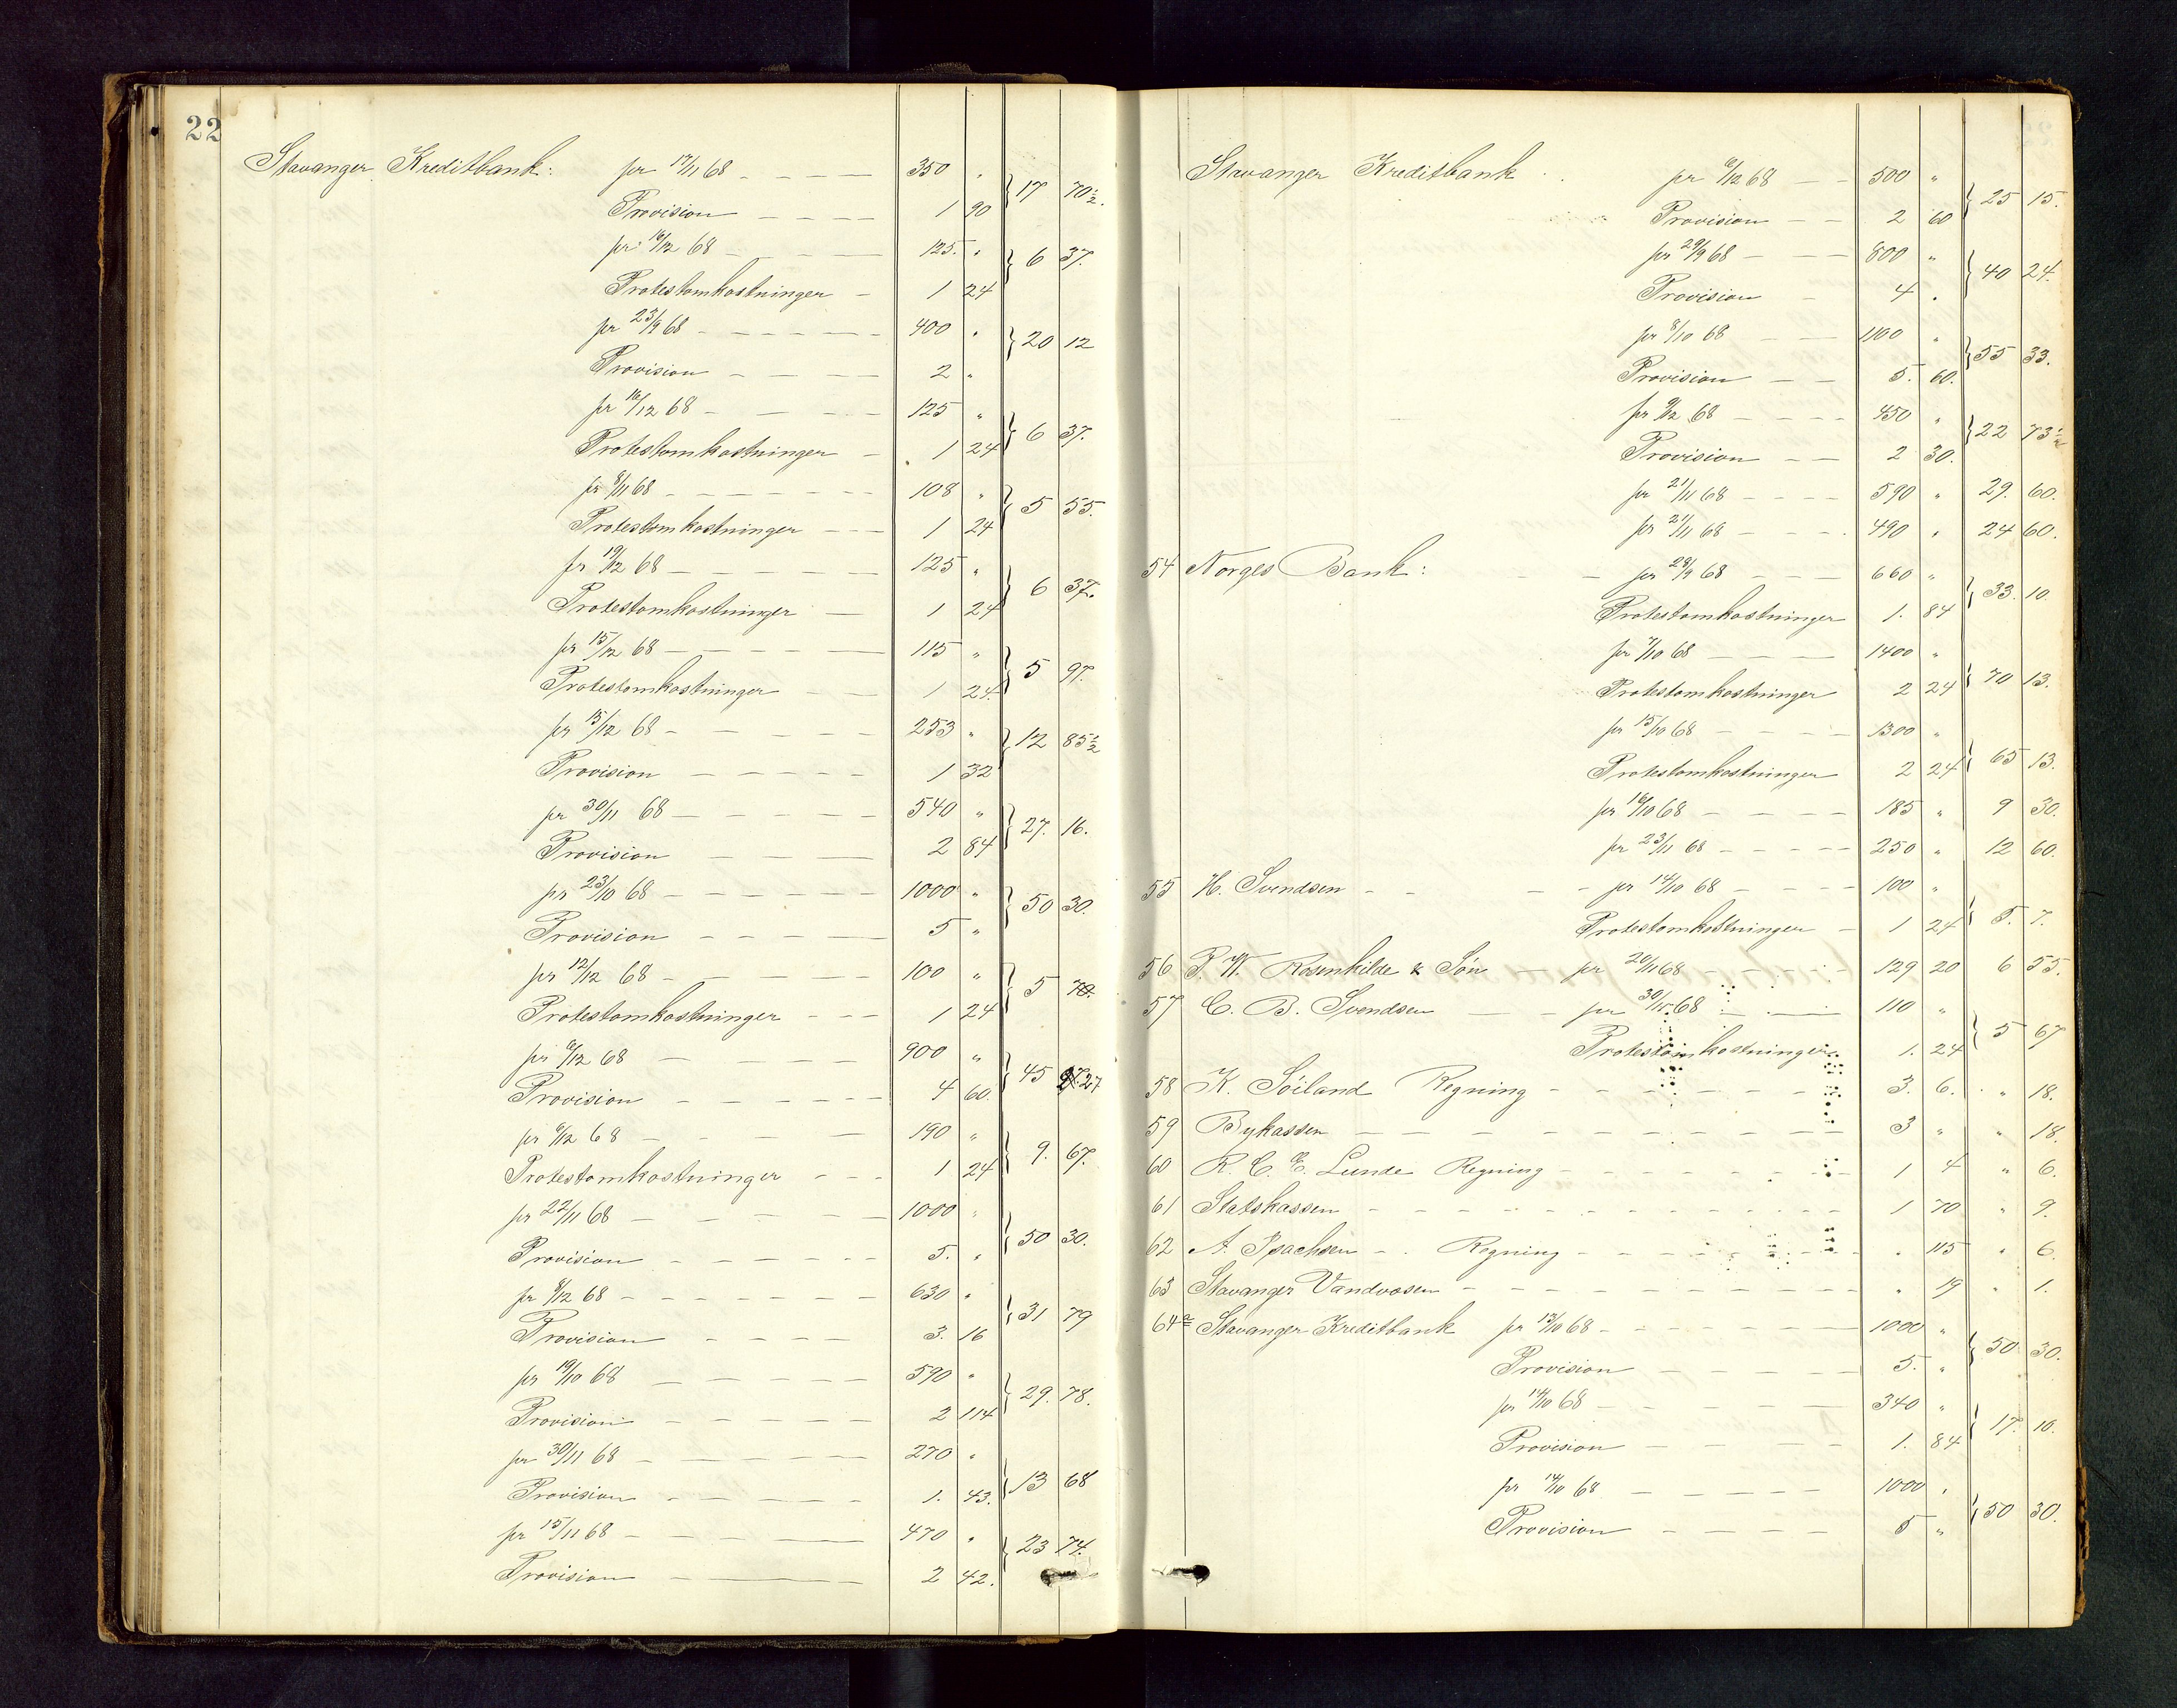 22
Stavanger Kreditbank: pr 17/11 68 - - - - 350 "
Provision - - - - 1 90 } 17 70½.
pr 16/12 68 - - - - 125. "
Protestomkostninger - 1 24 } 6 37.
pr 23/9 68 - - - - 400 "
Provision - - - - 2 " } 20 12
pr 16/12 68 - - - - 125 "
Protestomkostninger - 1 24 } 6 37.
pr 8/11 68 - - - - 108 "
Protestomkostninger - - 1 24 } 5 55.
pr 19/12 68 - - - - 125 "
Protestomkostninger - 1 24 } 6 37.
pr 15/12 68 - - - - 115 "
Protestomkostninger - - 1 24. } 5 97.
pr 15/12 68 - - - - 253 "
Provision - - - - 1 32 } 12 85½
pr 30/11 68 - - - - 540 "
Provision - - - 2 84 } 27. 16.
pr 23/10 68 - - - - 1000 "
Provision - - - - 5 " } 50 30.
pr 12/12 68 - - - - 100 "
Protestomkostninger - - - 1 24 } 5
pr 6/12 68 - - - - 900 "
Provision - - - - 4 60. } 45 27
pr 6/12 68 - - - - 190 "
Protestomkostninger - - - 1 24 } 9. 67.
pr 22/11 68 - - - - 1000 "
Provision - - - - 5. " } 50 30.
pr 8/12 68 - - - - 630 "
Provision - - - - 3. 16 } 31 79
pr 19/10 68 - - - - 590 "
Provision - - - - 2 114 } 29. 78.
pr 30/11 68 - - - - 270 "
Provision - - - - 1. 43. } 13 68
pr 15/11 68 - - - - 470 "
Provision - - - 2 42. } 23 74.
Stavanger Kreditbank pr 6/12 68 - - 500 "
Provision - - 2 60 } 25 15.
pr 29/9 68 - - - 800 "
Provision - 4 " } 40 24.
pr 8/10 68 - - 1100 "
Provision - - 5. 60. } 55 33.
pr 9/12 68 - - - - 450 "
Provision - - 2 30. } 22 73½
pr 21/11 68 - - - - 590 " 29. 60.
pr 21/11 68 - - - 490 " 24 60.
54 Norges Bank: - pr 28/9 68 - - - 660 "
Protestomkostninger 1. 84 } 33. 10
pr 7/10 68 - - - 1400 "
Protestomkostninger 2 24 } 70 13.
pr 15/10 68 - - - - 1300 "
Protestomkostninger 2 24 } 65 13.
pr 16/10 68 - - - - 185 " 9 30.
pr 23/11 68 - - - - 250 " 12 60.
55 H. Svendsen - - - pr 14/10 68 - - - 100 "
Protestomkostninger - 1 24 } 5. 7.
56 P. W. Rosenkilde & Søn - pr 20/11 68 - - - - 129 20 6 55.
57 C. B. Svendsen - - pr 68 - - 110 "
Protestomkostninger 1. 24 } 5 67
58 K. Söiland Regning - - - - 3. 6. " 18.
59 Bykassen - - - - - - - - 3 " " 18.
60 R. C. E. Lunde Regning - - - - 1 4 " 6.
61 Statskassen - - - - - - - - 1 70 " 9.
62 A. Isachsen - . Regning - - - - " 115 " 6.
63 Stavanger Vandvæsen - - - - - - - " 19 " 1.
64 Stavanger Kreditbank pr 13/10 68 - - - - 1000 "
Provision - - - - 5. " } 50 30.
pr 14/10 68 - - - - 340 "
Provision - - - - 1. 84 } 17. 10.
pr 14/10 68 - - - - 1000 "
Provision - - - - 5 " } 50 30.